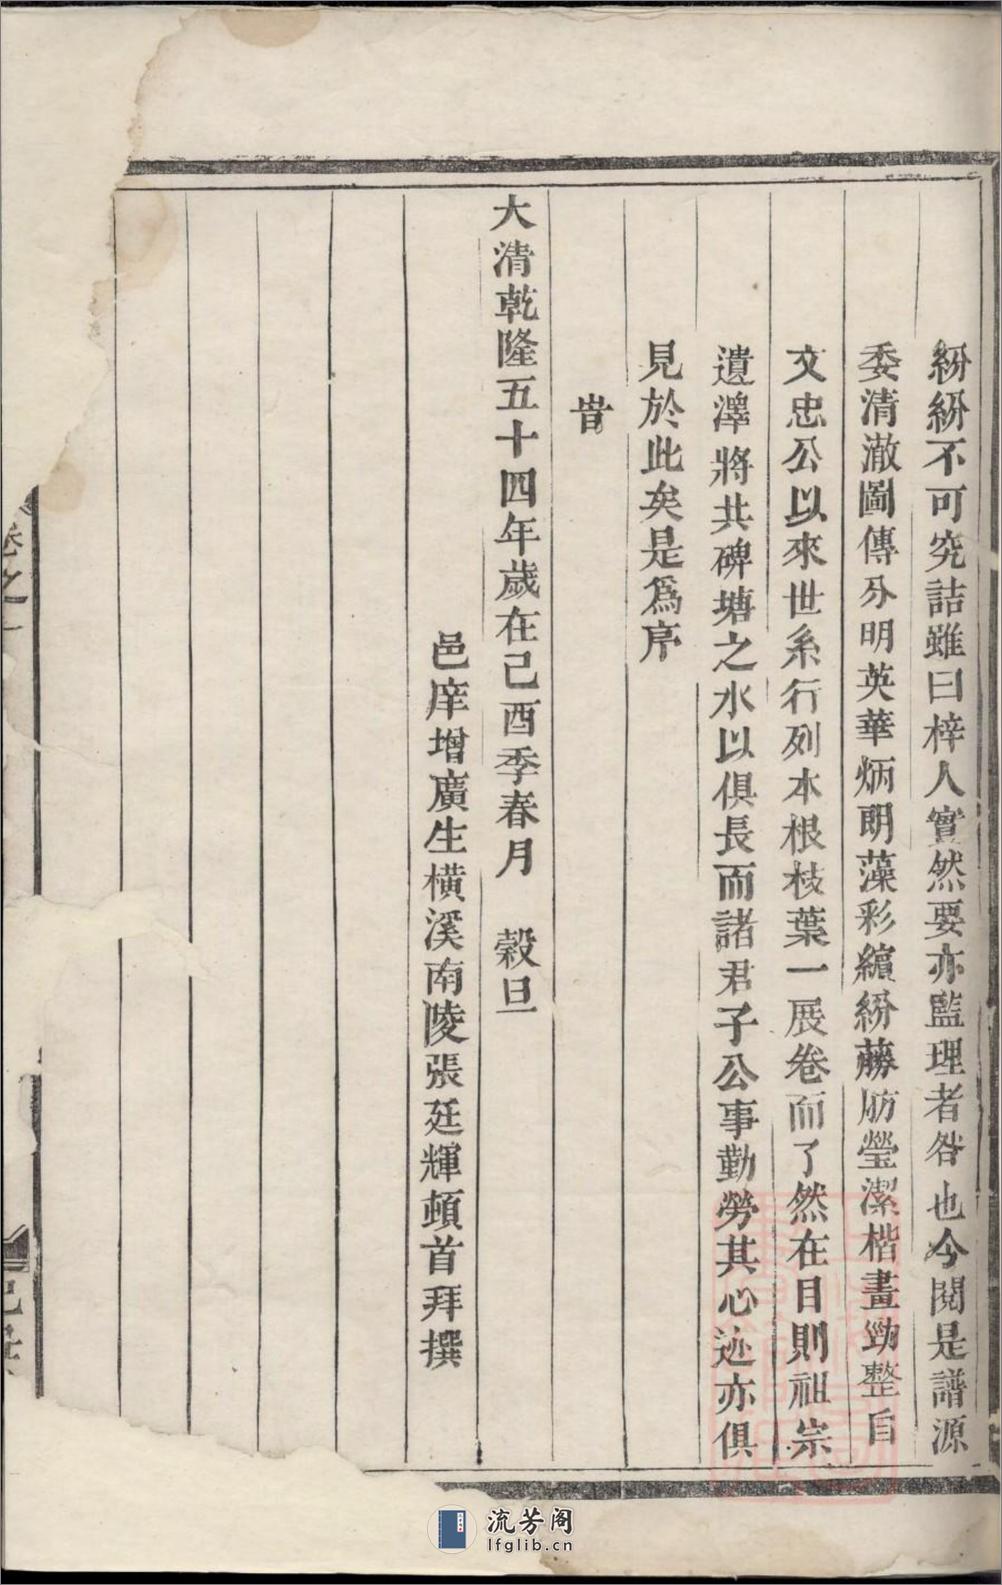 紛紛不可究詰雖曰梓人實然要亦監理者咎也今閱是譜源
委清澈圖傳分明英華炳朗藻彩繽紛藤肪瑩潔楷畫勁整自
文忠公以來世系行列本根枝葉一展卷而了然在目則祖宗
遺澤將共碑塘之水以俱長而諸君子公事勤勞其心迹亦俱
見於此矣是爲序
旹
大清乾隆五十四年歲在己酉季春月 穀旦
邑庠增廣生橫溪南陵張廷輝頓首拜撰
卷之一
流芳阁
lfglib.cn